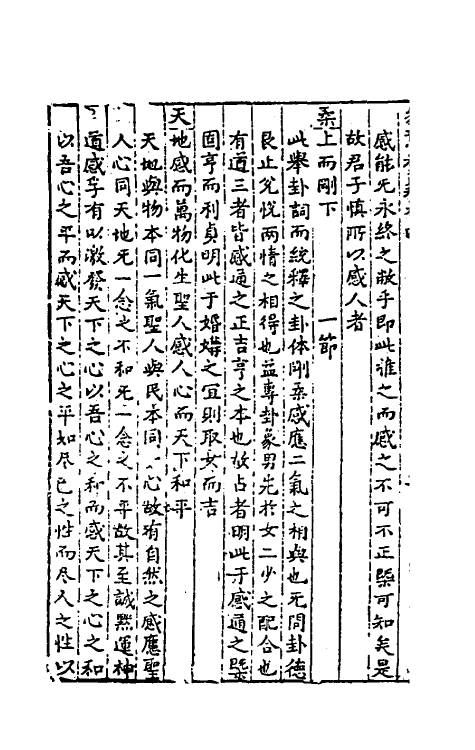 感能无永終之敝乎即此推之而感之不可不正槩可知矣是
故君子慎所以感人者
柔上而剛下　一節
此舉卦詞而統釋之卦体剛柔感應二氣之相與也无問卦德
艮止兌悅兩情之相得也益專卦象男先於女二少之配合也
有道三者皆感通之正吉亨之本也故占者明此于感通之槩
固亨而利貞明此于婚媾之宜則取女而吉
天地感而萬物化生聖人感人心而天下和平
天地與物本同一氣聖人與民本同一心故有自然之感應聖
人心同天地无一念之不和无一念之不平故其至誠黙運神
道感孚有以激發天下之心以吾心之和而感天下之心之和
以吾心之平而感天下之心之平如尽己之性而尽人之性以